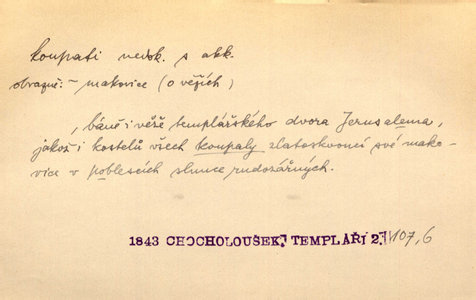 koupati nedok. s akk.
obrazně: – makovice (o věžích)
, báně i věže templářského dvora Jerusalema,
jakož i kostelů všech koupaly zlatoskvoucí své mako-
vice v poblescích slunce rudozářných.
1843 CHOCHOLOUŠEK, TEMPLÁŘI 2, 107, 6